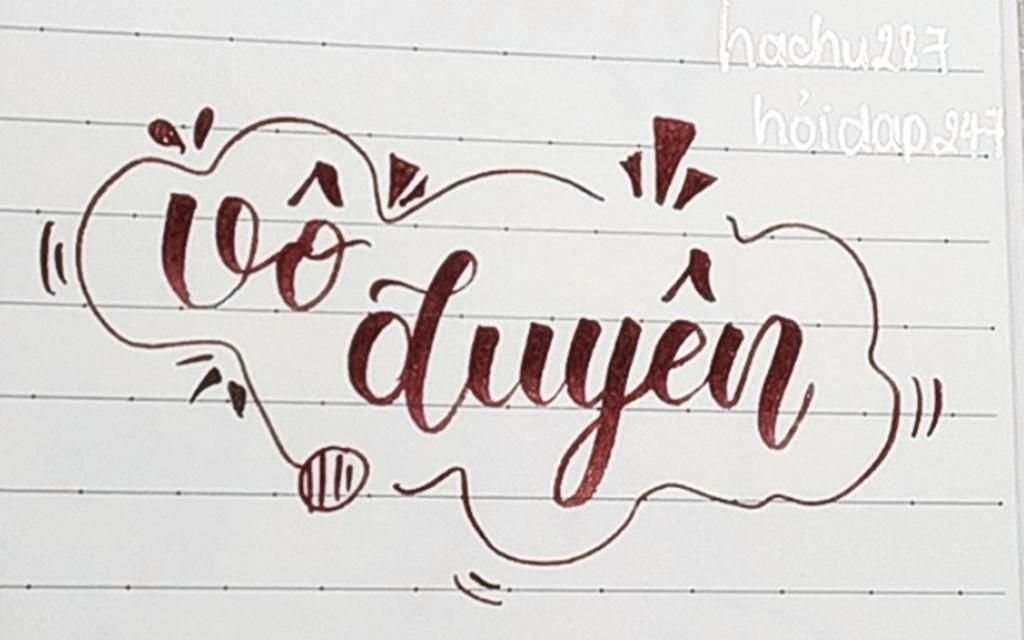 hachu287
hỏidap247
vô
duyên